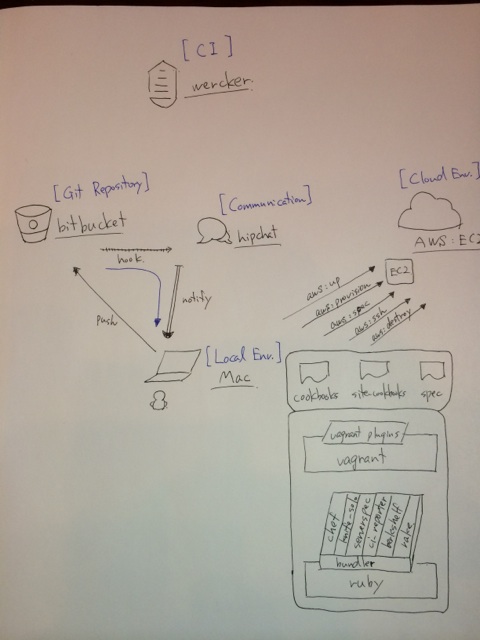 [CI]
wercker
[Git Repository]
bitbucket
[Communication]
hipchat
[Cloud Env.]
AWS:EC2
hook
push
notify
EC2
aws:up
aws:provision
aws:spec
aws:ssh
aws:destroy
[Local Env.]
Mac
cookbooks
site-cookbooks
spec
vagrant plugins
vagrant
chef
knife-solo
serverspec
ci-reporter
berkshelf
rake
bundler
ruby